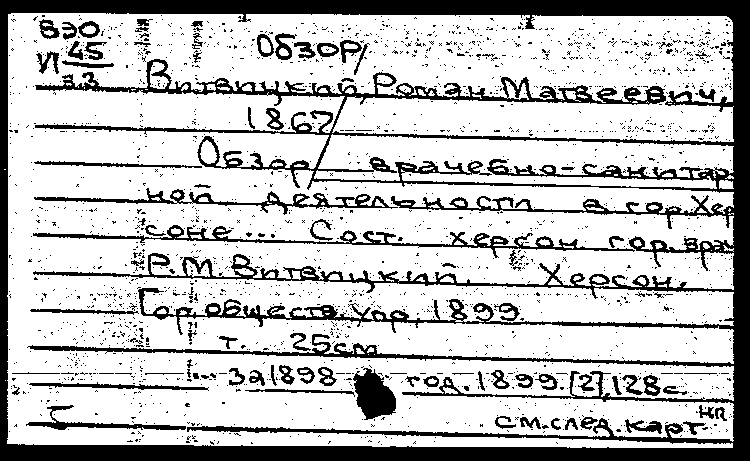 ВЭО
VI 45
в.3
Обзор/
Витвицкий, Роман Матвеевич,
1867
Обзор врачебно-санитар-
ной деятельности в гор. Хер-
соне... Сост. херсон гор. врач
Р.М. Витвицкий. Херсон.
Гор. обществ. упр, 1899.
т. 25см
... за 1898 год. 1899. [2], 128с.
НR
см. след. карт.